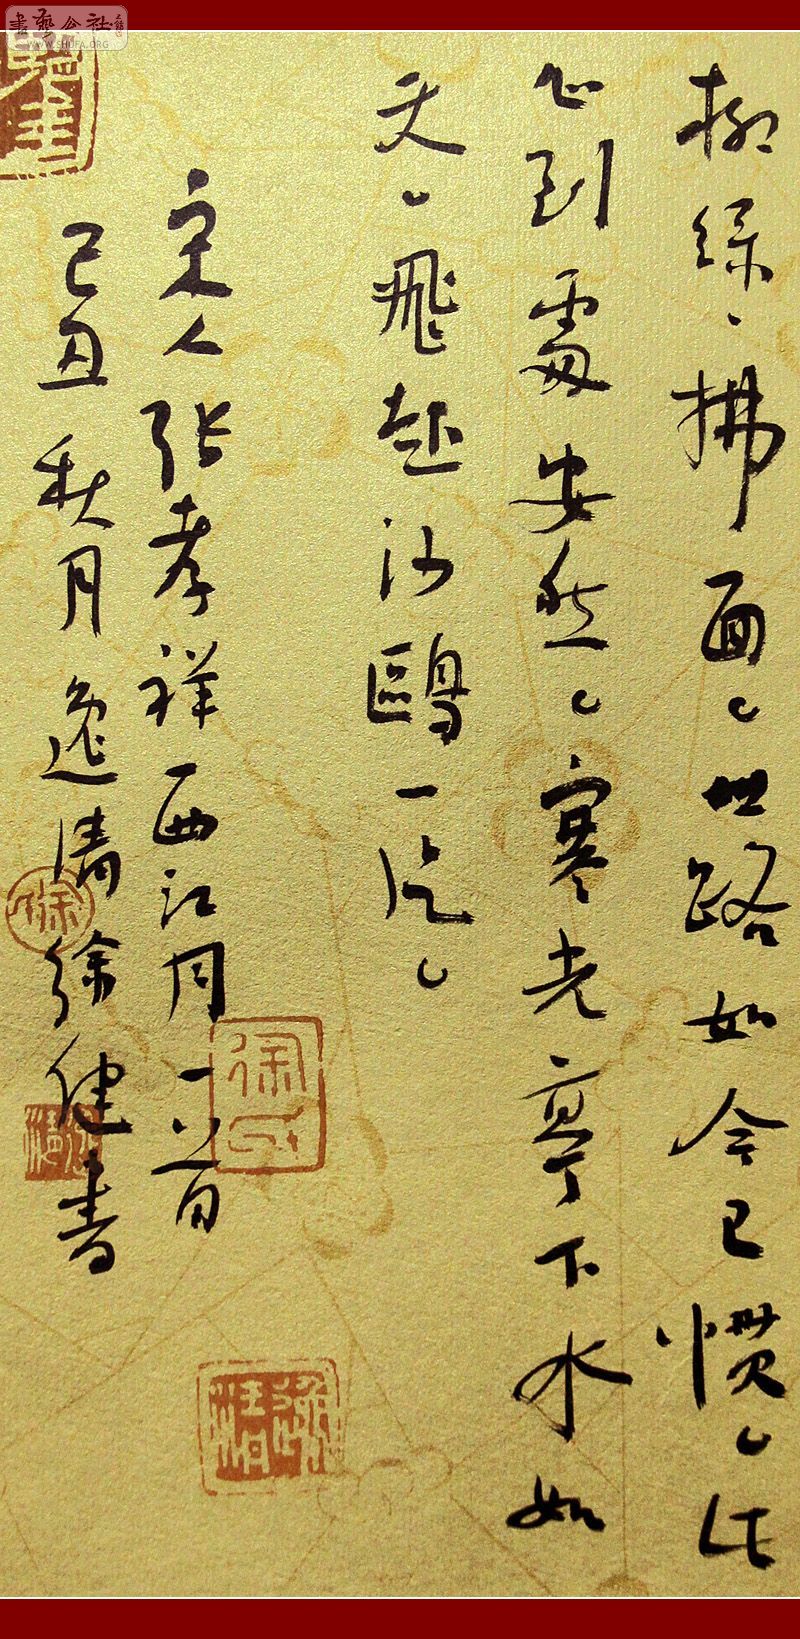 書藝公社
WWW.SHUFA.ORG
柳绿、拂面。世路如今已惯。此
心到處安然。寒光亭下水如
天。飛起沙鷗一片。
宋人张孝祥西江月一首
己丑秋月逸清徐健书